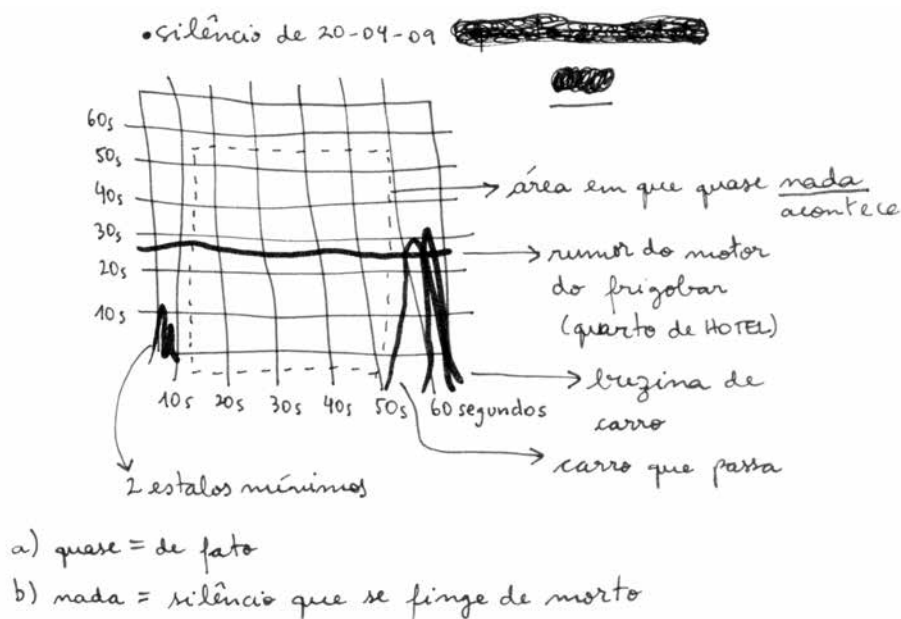 •silêncio de 20-04-09
60s
50s
40s
30s
20s
10s
10s 20s 30s 40s 50s 60 segundos
área em que quase nada
acontece
rumor do motor
do frigobar
(quarto de HOTEL)
buzina de
carro
carro que passa
2 estalos mínimos
a) quase = de fato
b) nada = silêncio que se finge de morto